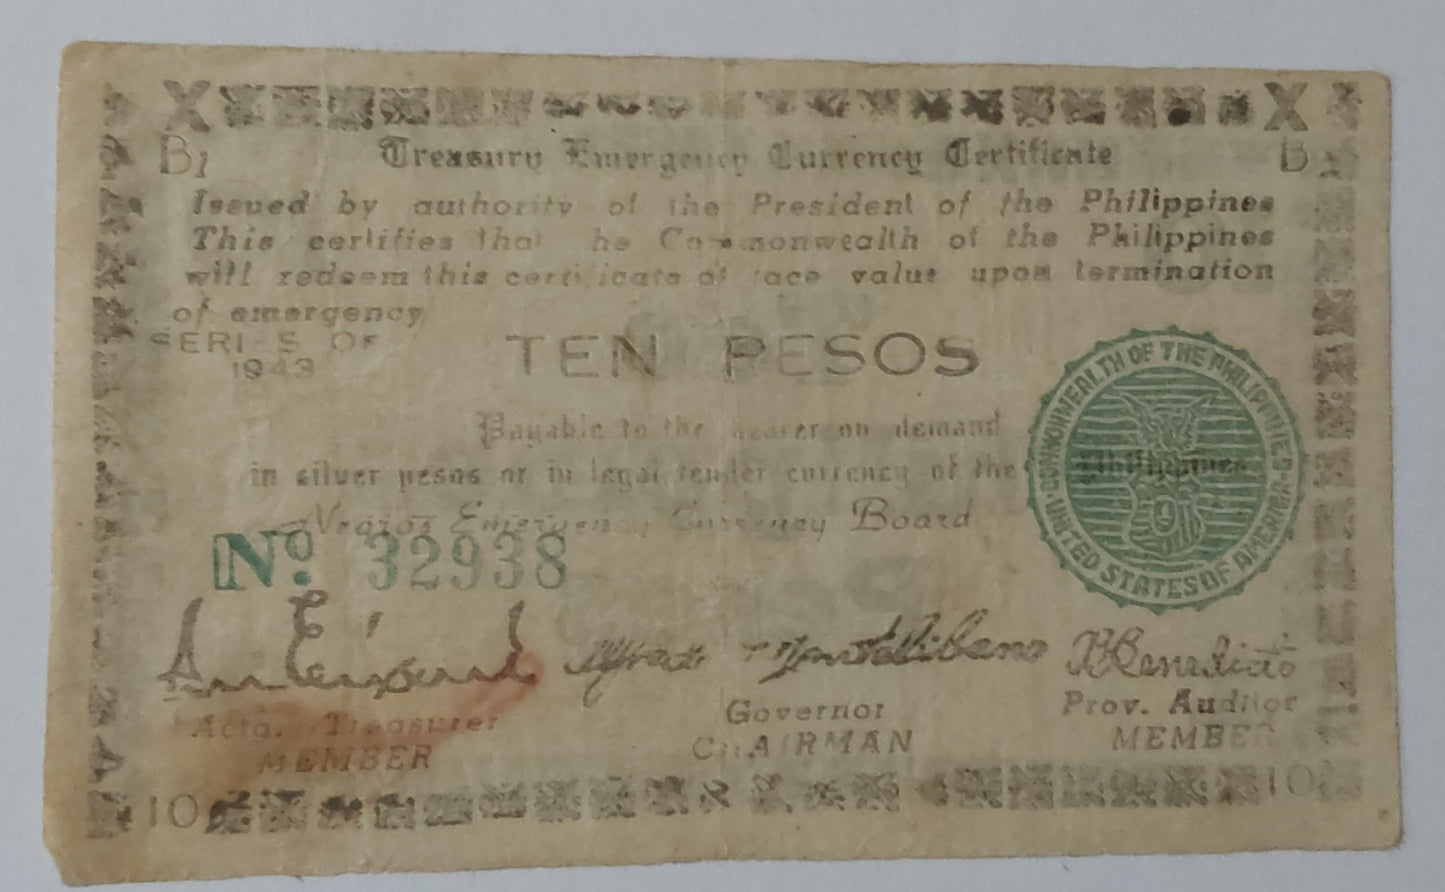 X X
B1 B
Treasury Emergency Currency Certificate
Issued by authority of the President of the Philippines
This certifies that he Commonwealth of the Philippines
will redeem this certificate at face value upon termination
of emergency
SERIES OF
1943
TEN PESOS
COMMONWEALTH OF THE PHILIPPINES
UNITED STATES OF AMERICA
Payable to the bearer on demand
in silver pesos or in legal tender currency of the Philippines
Negros Emergency Currency Board
No. 32938
Alfredo Montelibano
Acta. Treasurer
MEMBER
Governor
CHAIRMAN
Prov. Auditor
MEMBER
10 10